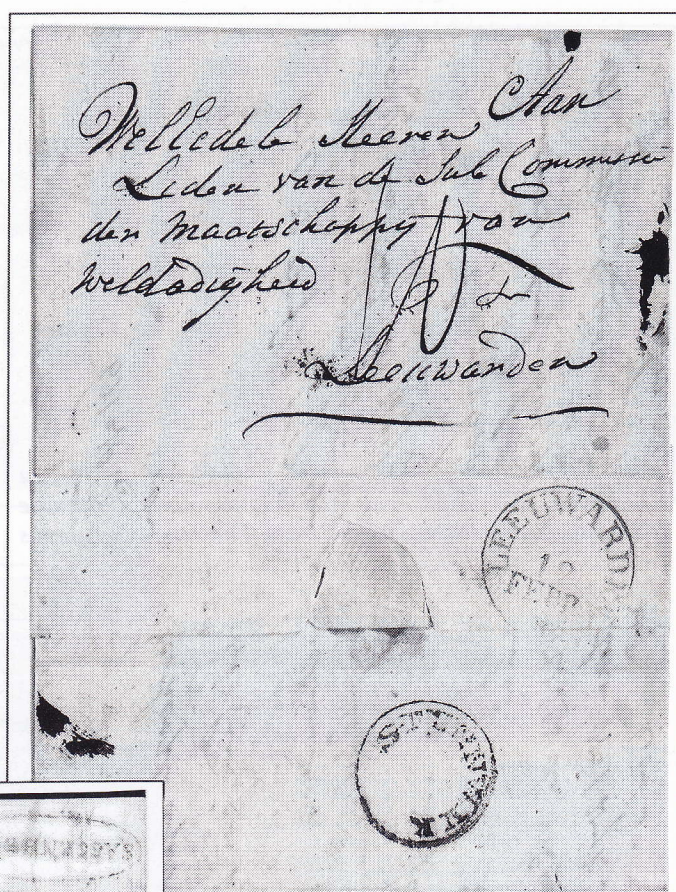 Aan
WelEedele Heeren
Leden van de Sub Commissie
der Maatschappy van
Weldadigheid
te
Leeuwarden
LEEUWARDE
FEBR
STEENWYK